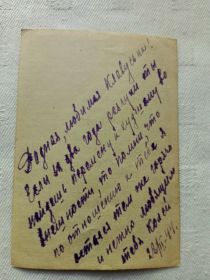 Родная любимая Клавусинька!
Если за два года разлуки ты
найдешь перемену и худшему во
внешности то помни что
по отношению к тебе я
остался том же верно
и нежно любящим
тебя Колей
23/VI-44г.